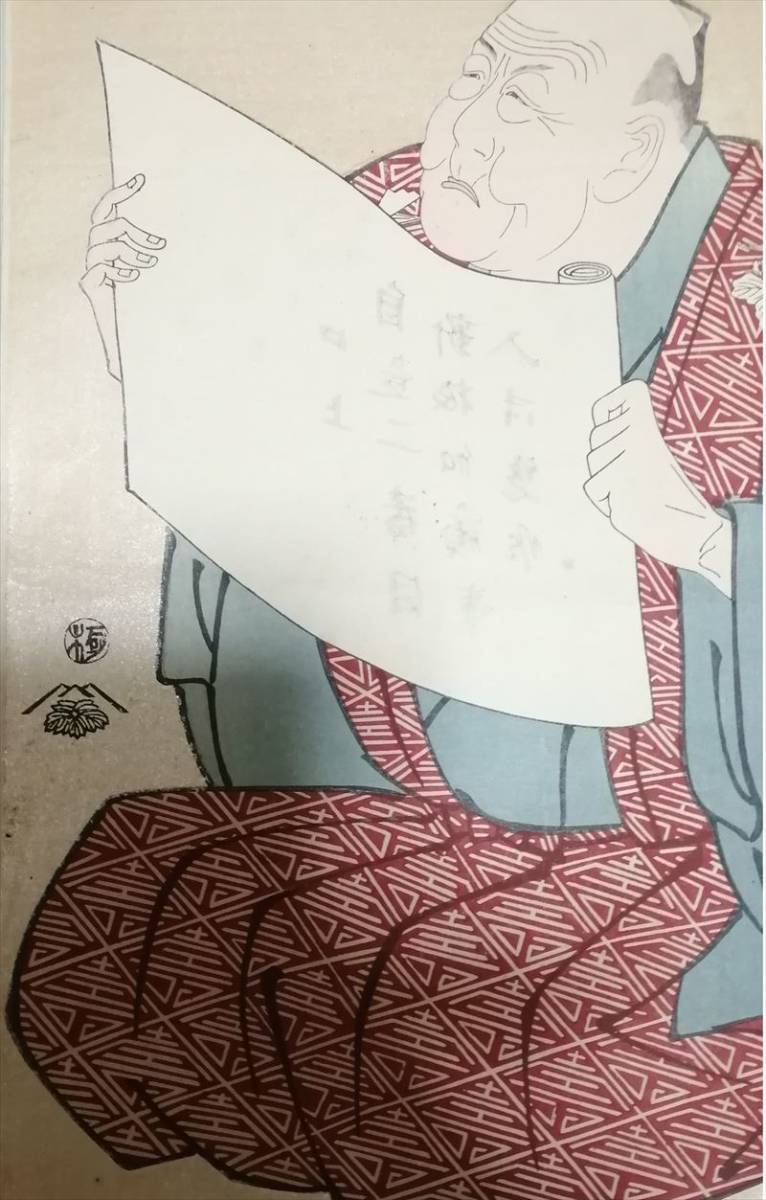 口上
自是二番目
新板似顔奉
入御覧候
極